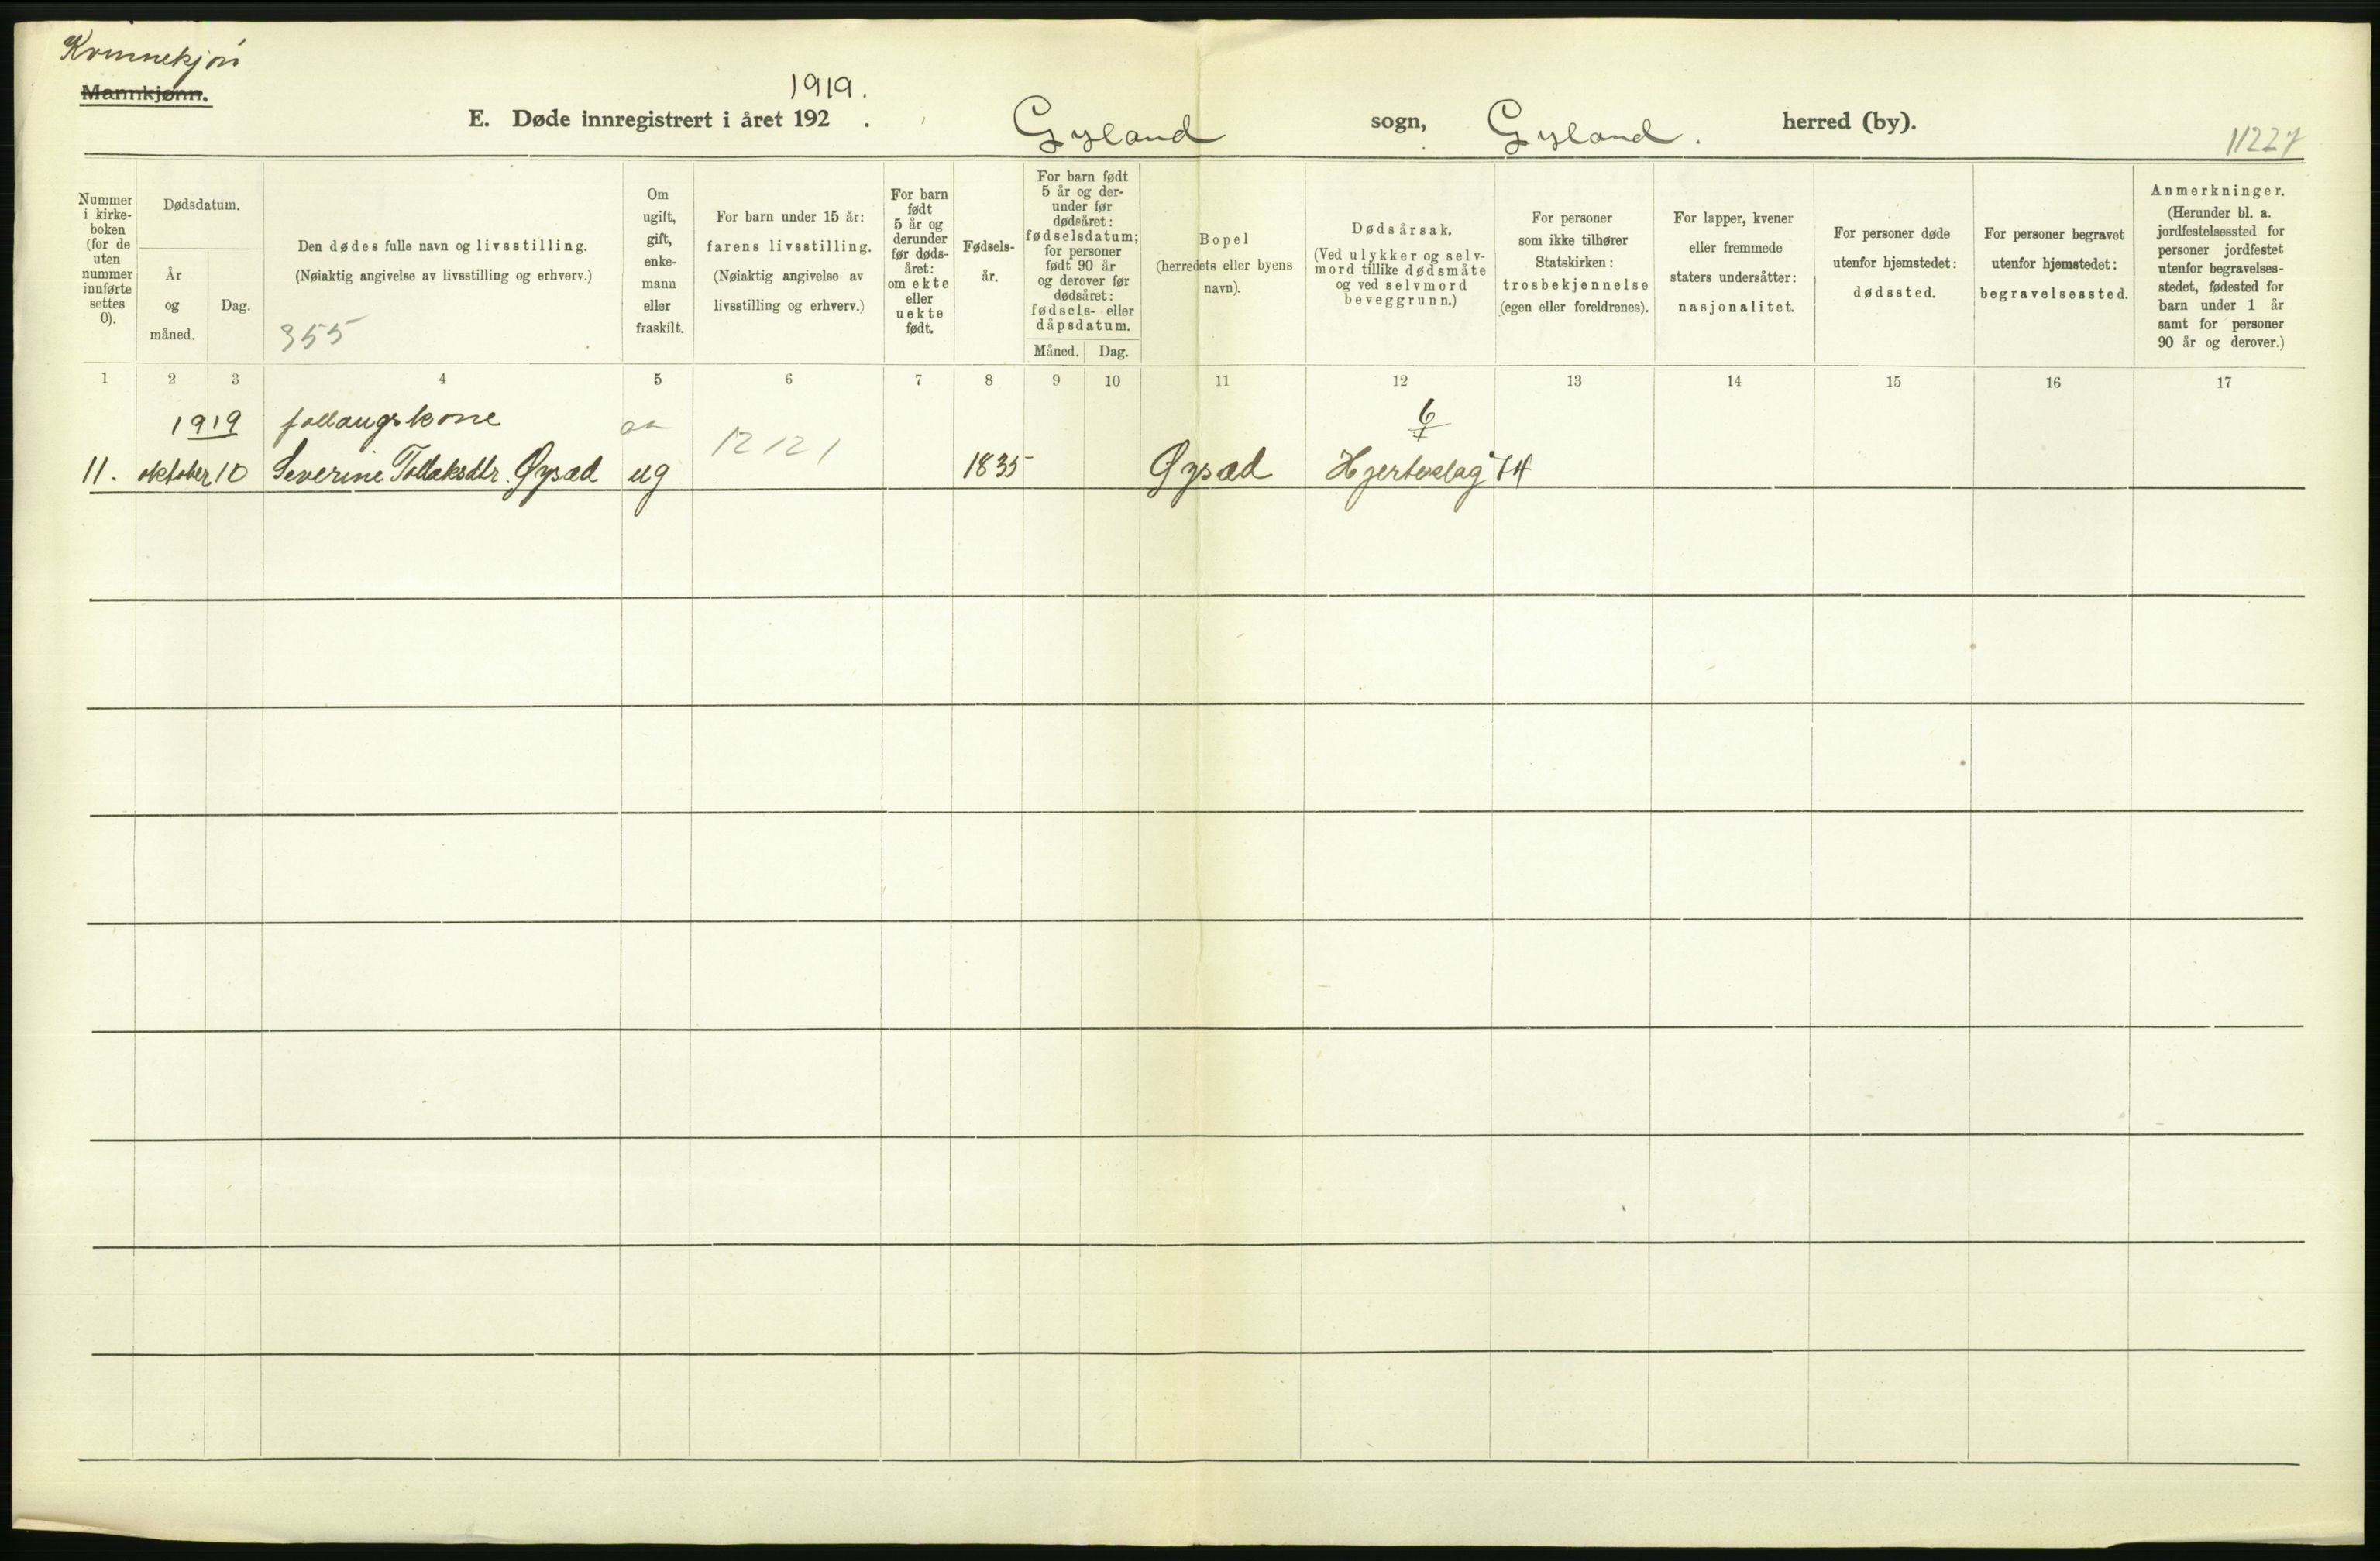 Kvinnekjøn
Mannkjønn.
1919.
E. Døde innregistrert i året 192 .
Gyland sogn, Gyland. herred (by).
11227
Nummer i kirke-boken (for de uten nummer innførte settes 0).
Dødsdatum.
År og måned.
Dag.
Den dødes fulle navn og livsstilling.
(Nøiaktig angivelse av livsstilling og erhverv.)
355
Om ugift, gift, enke-mann eller fraskilt.
For barn under 15 år:
farens livsstilling.
(Nøiaktig angivelse av
livsstilling og erhverv.)
For barn født 5 år og derunder før døds-året: om ekte eller uekte født.
Fødsels-år.
For barn født 5 år og der-under før dødsåret: fødselsdatum; for personer født 90 år og derover før dødsåret: fødsels- eller dåpsdatum.
Måned. Dag.
Bopel
(herredets eller byens
navn).
Dødsårsak.
(Ved ulykker og selv-
mord tillike dødsmåte
og ved selvmord
beveggrunn.)
For personer
som ikke tilhører
Statskirken:
trosbekjennelse
(egen eller foreldrenes).
For lapper, kvener
eller fremmede
staters undersåtter:
nasjonalitet.
For personer døde
utenfor hjemstedet:
dødssted.
For personer begravet
utenfor hjemstedet:
begravelsessted.
Anmerkninger.
(Herunder bl. a.
jordfestelsessted for
personer jordfestet
utenfor begravelses-
stedet, fødested for
barn under 1 år
samt for personer
90 år og derover.)
1 2 3 4 5 6 7 8 9 10 11 12 13 14 15 16 17
1919 follaugskone 12121 6
11. oktober 10 Severine Tollaksdtr. Øysæd ug 1835 Øysæd Hjerteslag 74